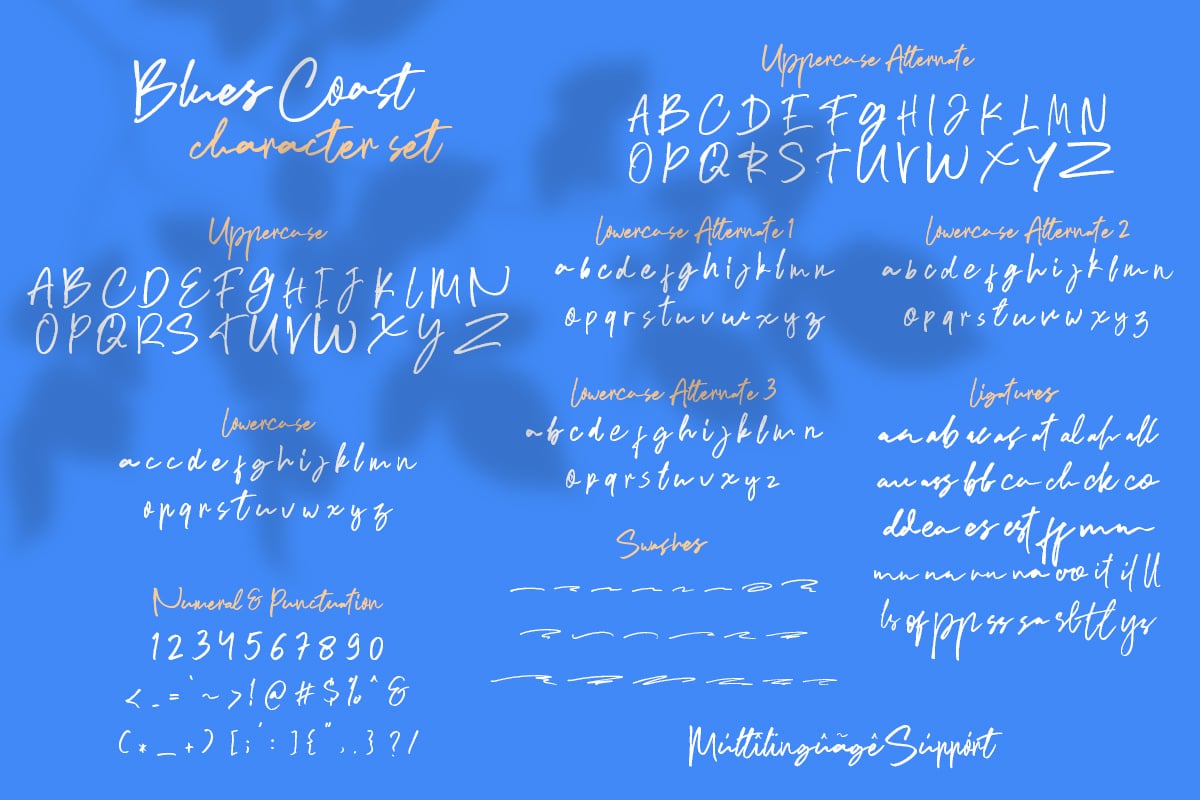 Blues Coast
character set
Uppercase
A B C D E F G H I J K L M N
O P Q R S T U V W X Y Z
Lowercase
a c c d e f g h i j k l m n
o p q r s t u v w x y z
Numeral & Punctuation
1 2 3 4 5 6 7 8 9 0
< - = ` ~ > ! @ # $ % ^ &
( * _ + ) [ ; ' : ] { " , . } ? /
Uppercase Alternate
A B C D E F G H I J K L M N
O P Q R S T U V W X Y Z
Lowercase Alternate 1
a b c d e f g h i j k l m n
o p q r s t u v w x y z
Lowercase Alternate 2
a b c d e f g h i j k l m n
o p q r s t u v w x y z
Lowercase Alternate 3
a b c d e f g h i j k l m n
o p q r s t u v x y z
Swashes
Ligatures
an ab ac as at al ah all
au ass bb ca ch ck co
dd ea es est ff mm
mu na nn na oo it il ll
ls of pp ss sa sl tt ys
Múltîlingûãgê Súppórt